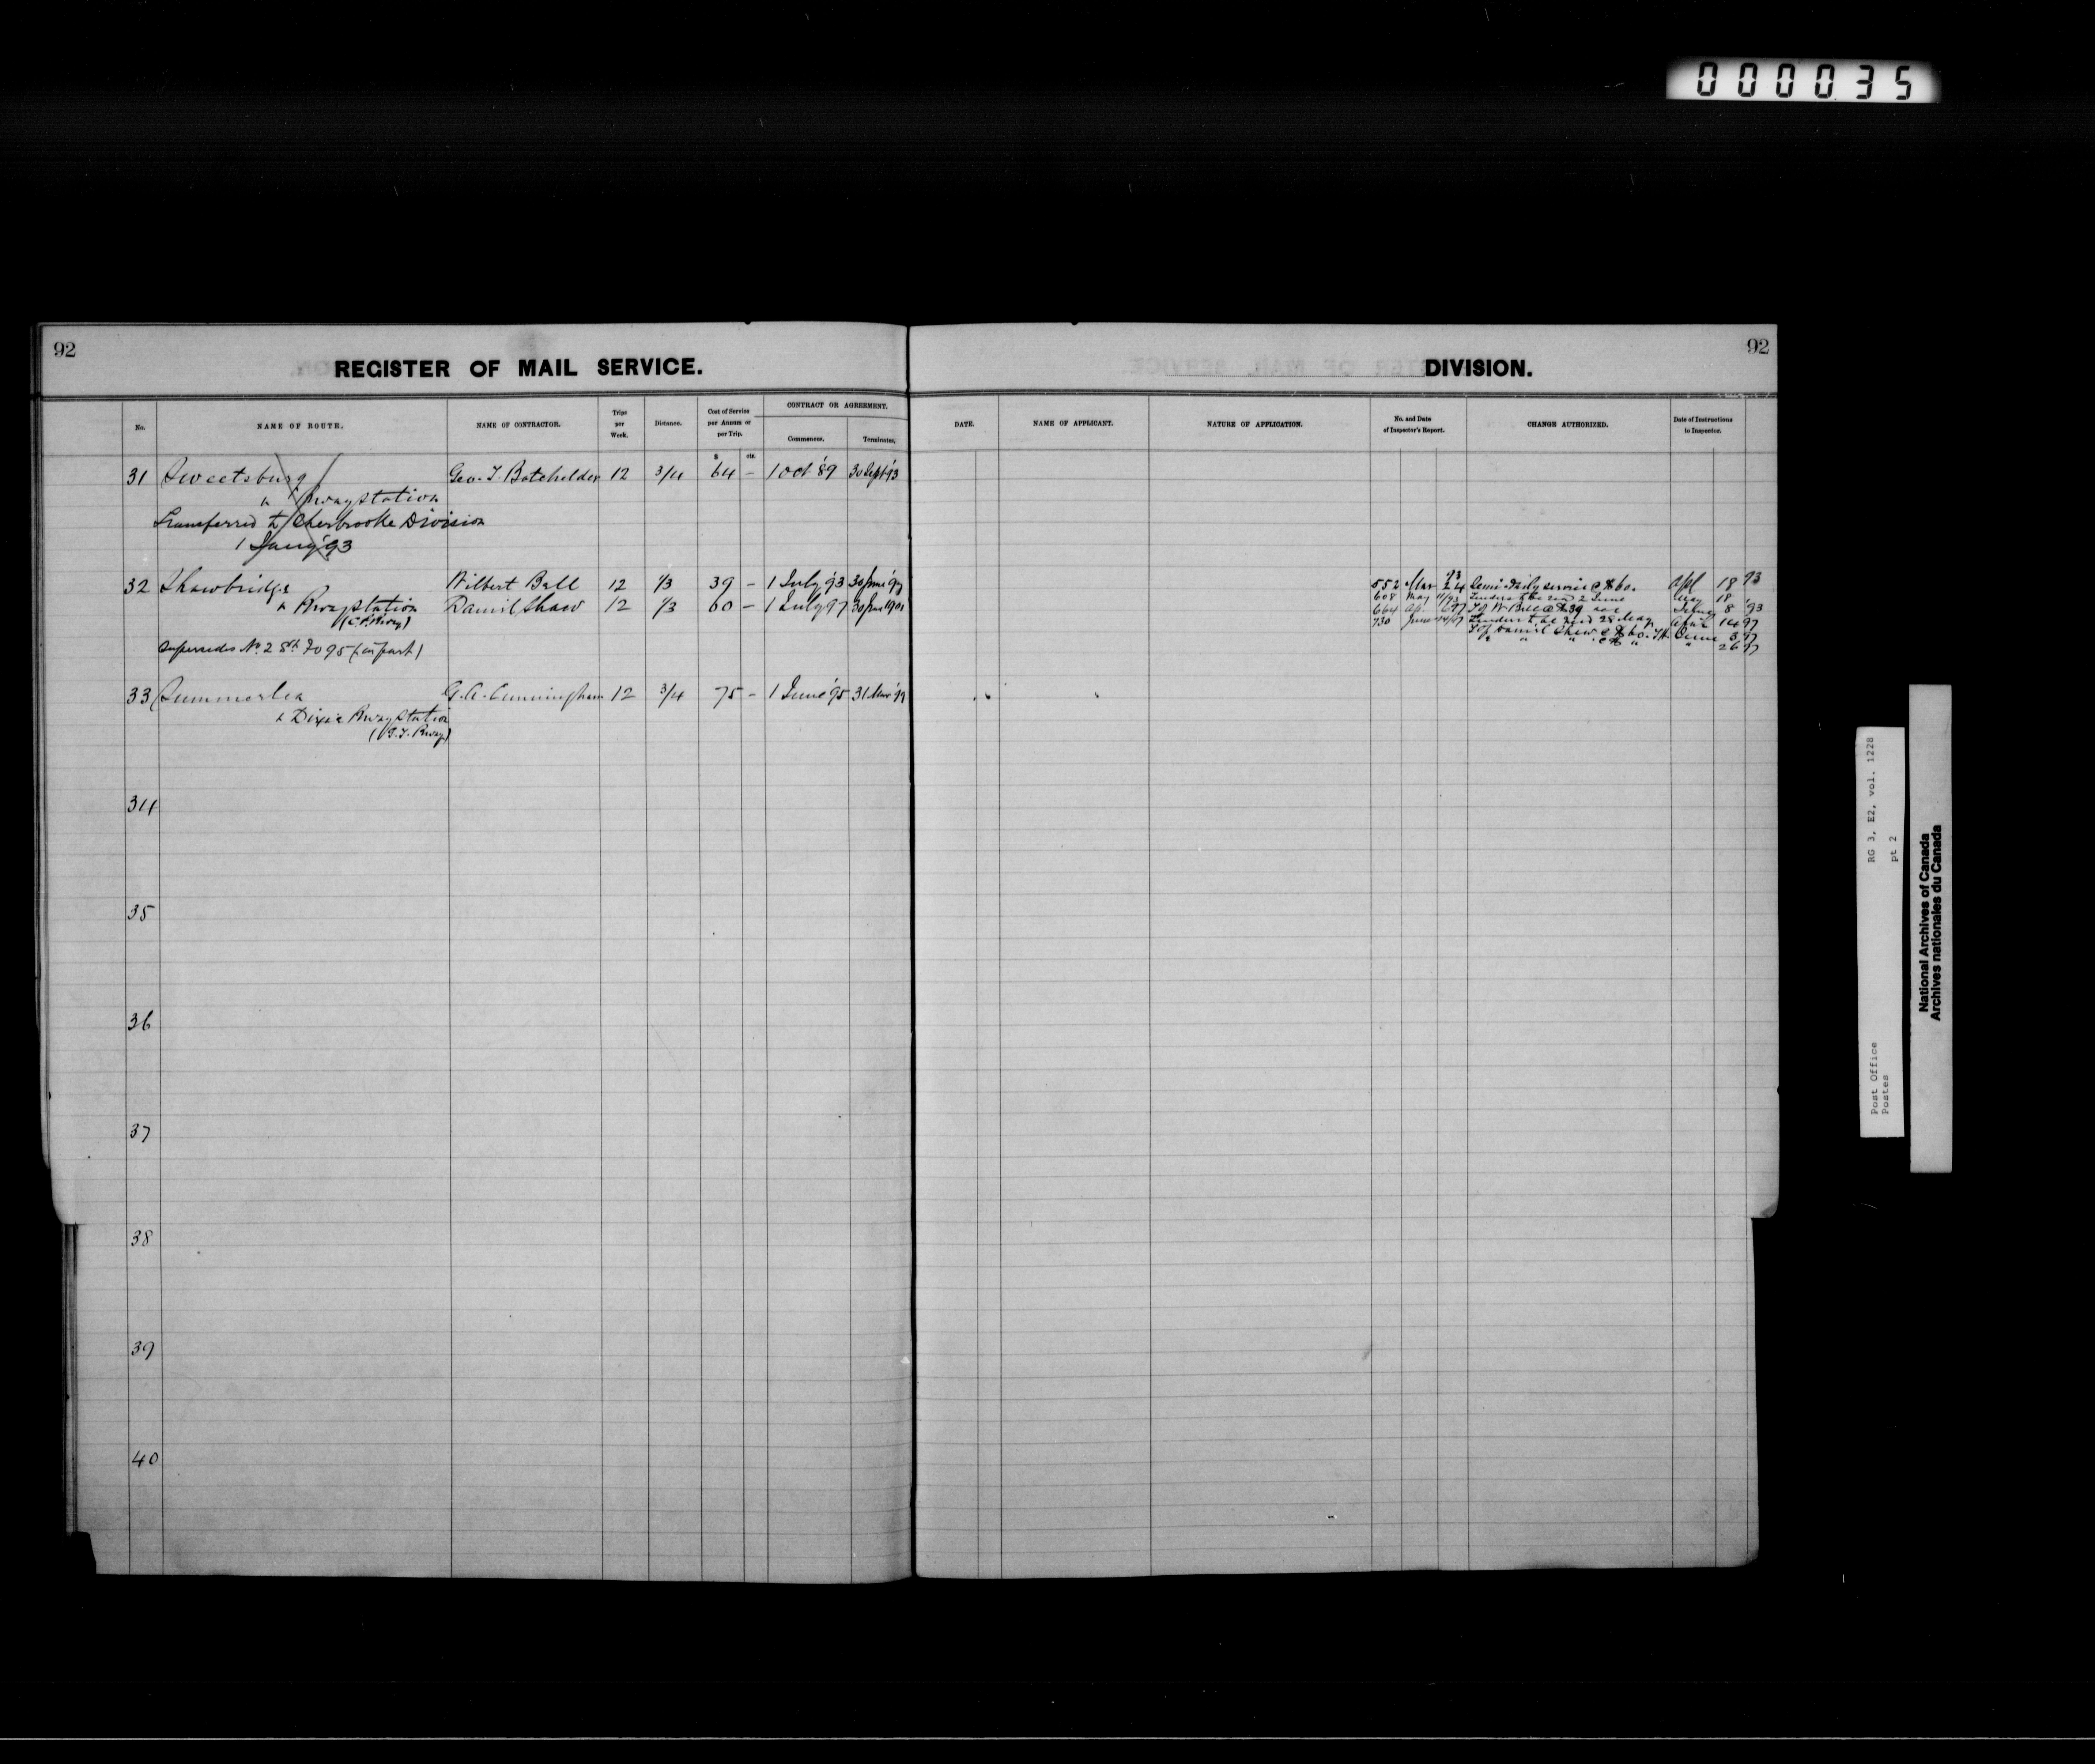 000035
92
REGISTER OF MAIL SERVICE.
No. NAME OF ROUTE. NAME OF CONTRACTOR. Trips per Week. Distance. Cost of Service per Annum or per Trip. CONTRACT OR AGREEMENT. Commences. Terminates.
$ cts.
31 Sweetsburg Geo. T. Batchelder 12 3/4 64 – 1 Oct '89 30 Sept '93
& Rwaystation
Transferred to Sherbrooke Division
1 Jany '93
32 Shawbridge Wilbert Ball 12 1/3 39 – 1 July '93 30 June '97
& Rwaystation Daniel Shaw 12 1/3 60 – 1 July 97 30 June 1901
(C.P. Rway)
Supersedes No. 2 95 (in part)
33 Summerlea G.A. Cunningham 12 3/4 75 – 1 June '95 31 Mar '99
& Dixie Rway Station
(G.T. Rway)
34
35
36
37
38
39
40
92
DIVISION.
DATE. NAME OF APPLICANT. NATURE OF APPLICATION. No. and Date of Inspector's Report. CHANGE AUTHORIZED. Date of Instructions to Inspector.
93
552 Mar 24 Semi-daily service @ $60. Apl 18 93
608 May 11/93 Tenders to be recd 2 June May 18
664 W Ball @ $39 8 '93
730 June Tenders to be recd 28 May April 14 97
Daniel Shaw @ $60. June 3 97
" " " " 26 97
Post Office RG 3, E2, vol. 1228
Postes pt 2
National Archives of Canada
Archives nationales du Canada